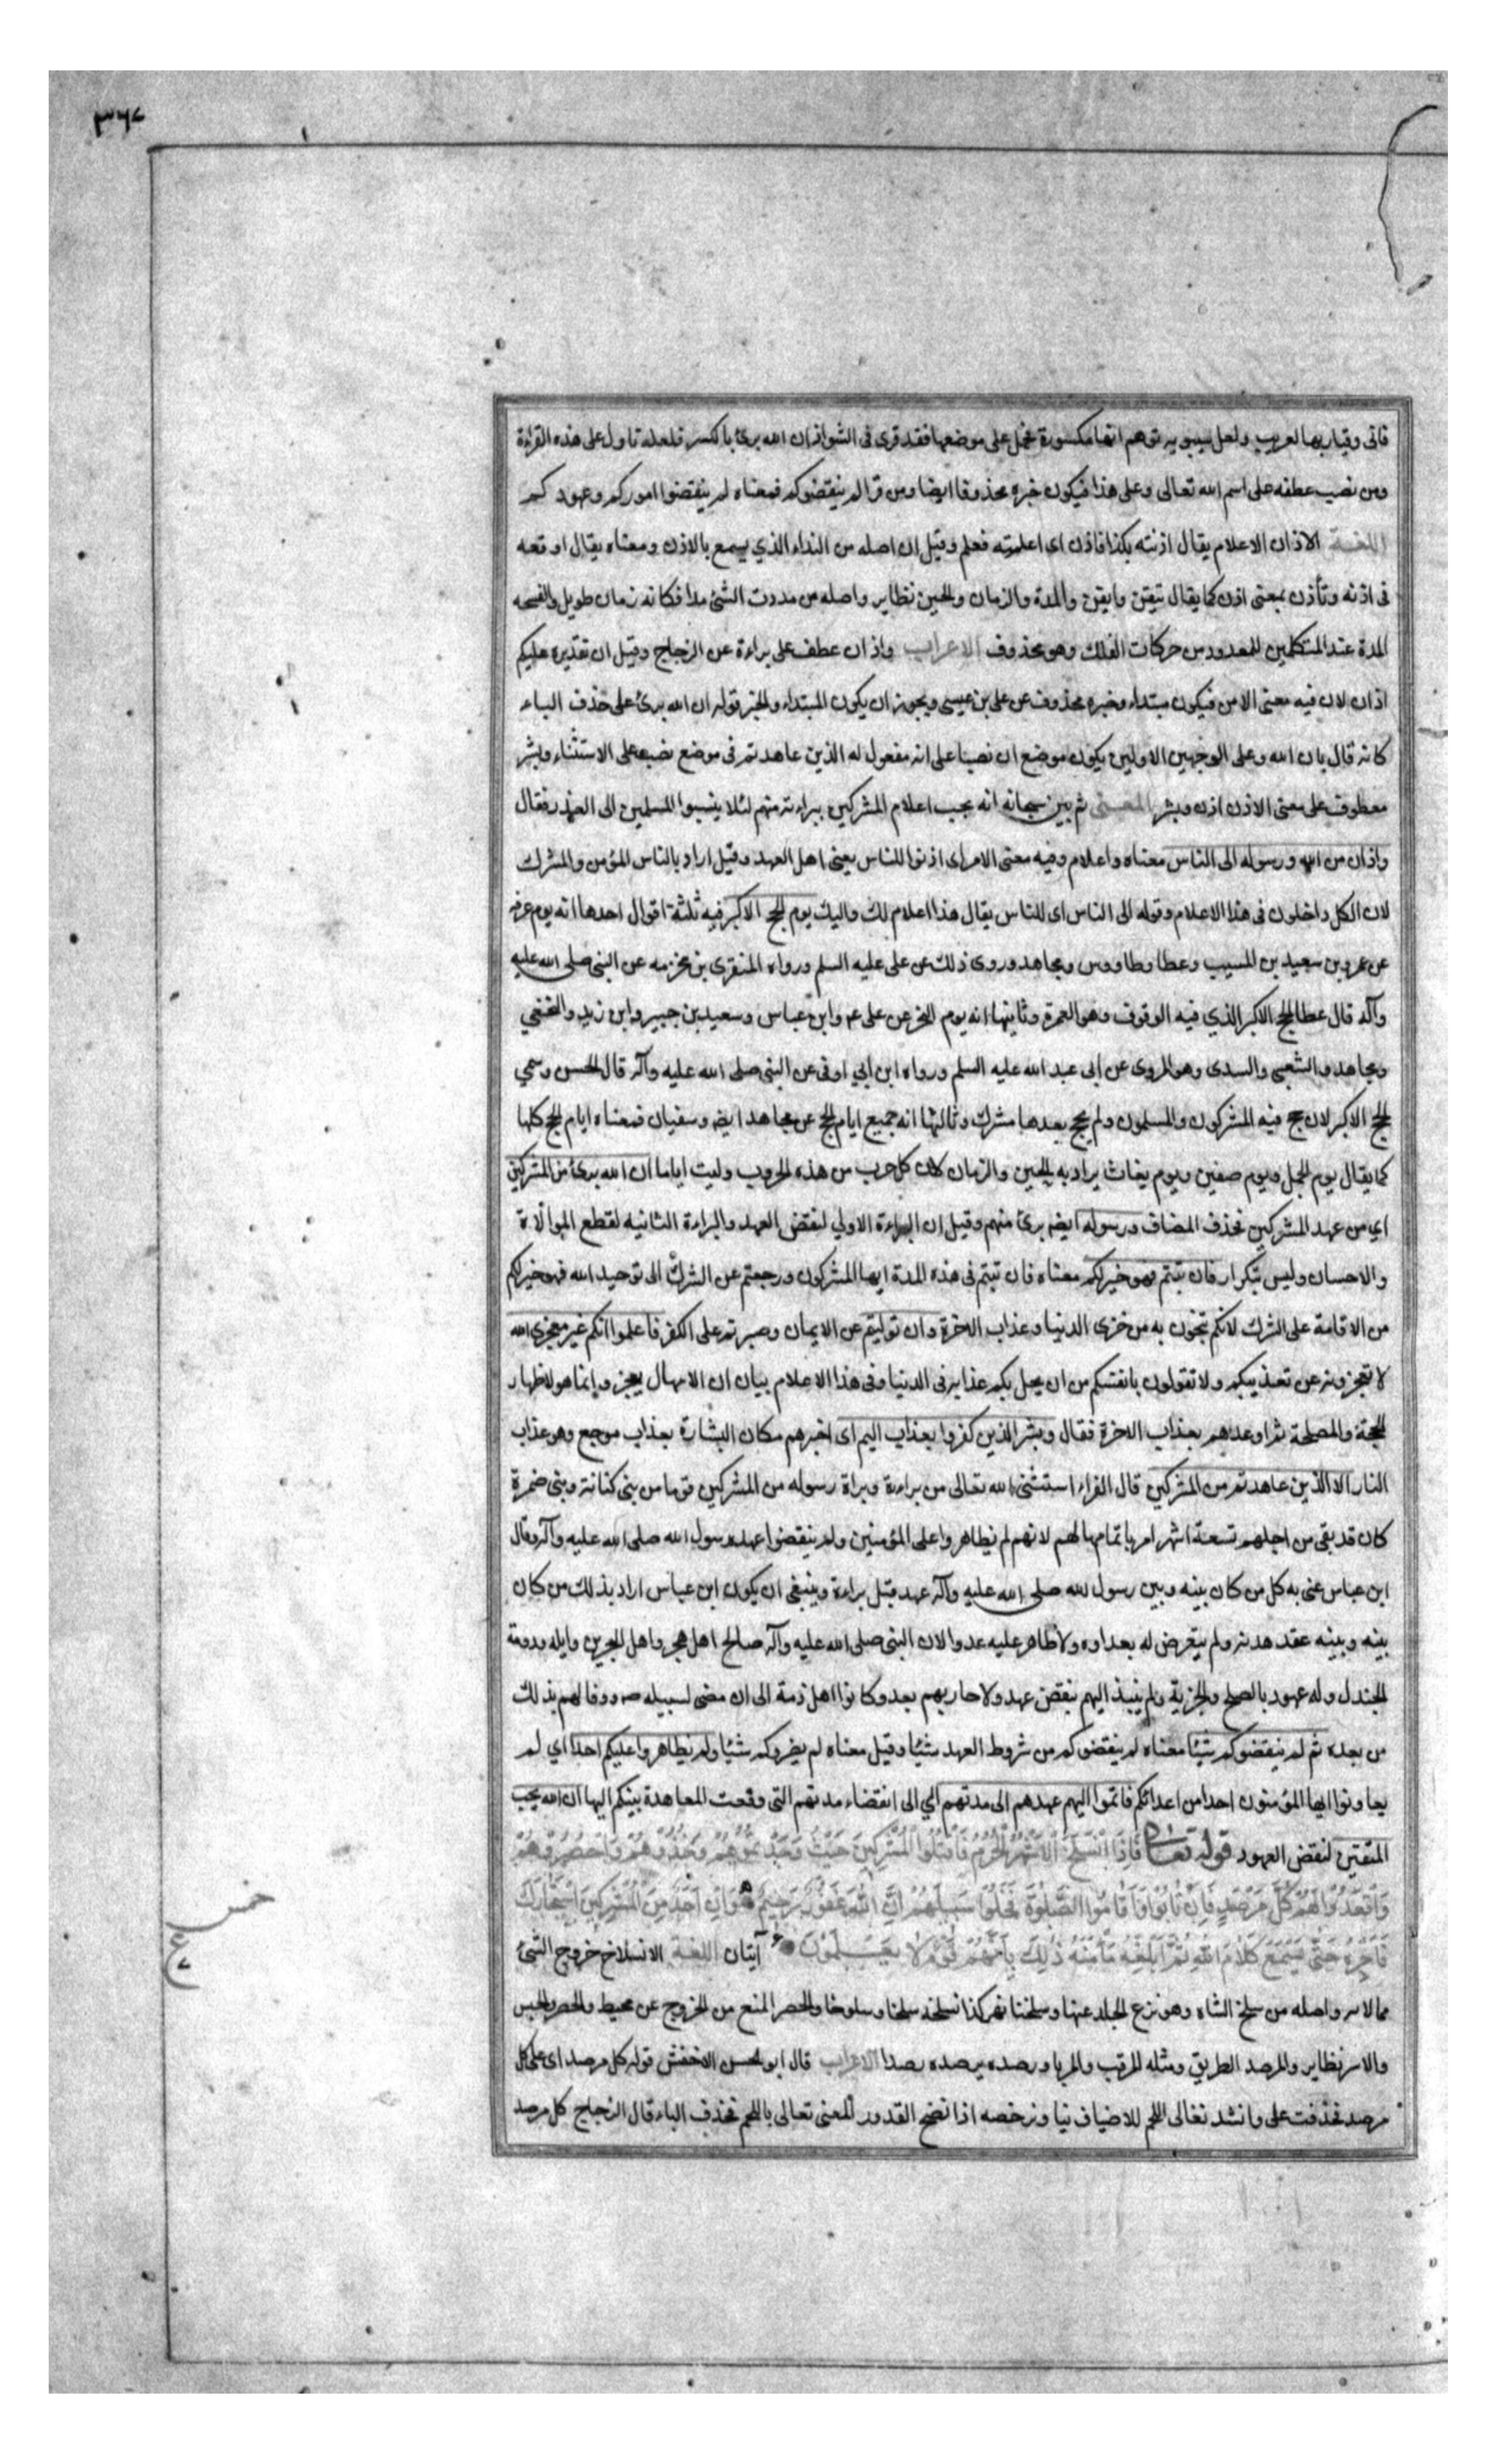 ٣٦٧
فانى وقيار بها لعريب ولعل سيبويه توهم انها مكسورة فحمل على موضعها فقد قرى فى الشواذ ان الله برئ بالكسر فلعله تاول على هذه القراءة
ومن نصب عطفه على اسم الله تعالى وعلى هذا فيكون خبره محذوفا ايضا ومن قرا لم ينقضوكم فمعناه لم ينقضوا اموركم وعهودكم
اللغة الاذان الاعلام يقال اذنته بكذا فاذن اى اعلمته فعلم وقيل ان اصله من النداء الذي يسمع بالاذن ومعناه يقال اوقعه
فى اذنه وتأذن بمعنى اذن كما يقال تيقن وايقن والمدة والزمان والحين نظاير واصله من مددت الشئ مدا فكانه زمان طويل والفسحه
المدة عند المتكلمين للمعدود من حركات الفلك وهو محذوف الاعراب واذان عطف على براءة عن الزجاج وقيل ان تقديره عليكم
اذان لان فيه معنى الامن فيكون مبتداء وخبره محذوف عن على بن عيسى ويجوز ان يكون المبتداء والخبر قوله ان الله برئ على حذف الباء
كانه قال بان الله وعلى الوجهين الاولين يكون موضع ان نصبا على انه مفعول له الذين عاهدتم فى موضع نصب على الاستثناء وبشر
معطوف على معنى الاذن اذن وبشر المعنى ثم بين سبحانه انه يجب اعلام المشركين ببراءته منهم لئلا ينسبوا المسلمين الى الغدر فقال
واذان من الله ورسوله الى الناس معناه واعلام وفيه معنى الامر اى اذنوا للناس يعنى اهل العهد وقيل اراد بالناس المؤمن والمشرك
لان الكل داخلون فى هذا الاعلام وقوله الى الناس اى للناس يقال هذا اعلام لك واليك يوم الحج الاكبر فيه ثلثة اقوال احدها انه يوم عرفه
عن عمر بن سعيد بن المسيب وعطا وطاووس ومجاهد وروى ذلك عن على عليه السلم ورواه المنقرى بن مخرمه عن النبى صلى الله عليه
وآله قال عطا الحج الاكبر الذي فيه الوقوف وهو العمرة وثانيها انه يوم النحر عن على عم وابن عباس وسعيد بن جبير وابن زيد والنخعي
ومجاهد والشعبى والسدى وهو المروى عن ابى عبد الله عليه السلم ورواه ابن ابي اوفى عن النبى صلى الله عليه وآله قال الحسن وسمي
الحج الاكبر لان حج فيه المشركون والمسلمون ولم يحج بعدها مشرك وثالثها انه جميع ايام الحج عن مجاهد ايض وسفيان فمعناه ايام الحج كلها
كما يقال يوم الجمل ويوم صفين ويوم بغاث يراد به الحين والزمان لان كل حرب من هذه الحروب وليت اياما ان الله برئ من المشركين
اي من عهد المشركين فحذف المضاف ورسوله ايضا برئ منهم وقيل ان البراءة الاولي لنقض العهد والبراءة الثانيه لقطع الموالاة
والاحسان وليس بتكرار فان تبتم فهو خير لكم معناه فان تبتم فى هذه المدة ايها المشركون ورجعتم عن الشرك الى توحيد الله فهو خير لكم
من الاقامة على الشرك لانكم تنجون به من خزى الدنيا وعذاب الاخرة وان توليتم عن الايمان وصبرتم على الكفر فاعلموا انكم غير معجزى الله
لا تعجزونه عن تعذيبكم ولا تفوتون بانفسكم من ان يحل بكم عذابه فى الدنيا وفى هذا الاعلام بيان ان الامهال بعجز وانما هو لاظهار
الحجة والمصلحة ثم اوعدهم بعذاب الاخرة فقال وبشر الذين كفروا بعذاب اليم اى اخبرهم مكان البشارة بعذاب موجع وهو عذاب
النار الا الذين عاهدتم من المشركين قال الفراء استثنى الله تعالى من براءة وبراة رسوله من المشركين قوما من بنى كنانة وبنى ضمرة
كان قد بقى من اجلهم تسعة اشهر امر باتمامها لهم لانهم لم يظاهروا على المؤمنين ولم ينقضوا عهد رسول الله صلى الله عليه وآله وقال
ابن عباس عنى به كل من كان بينه وبين رسول الله صلى الله عليه وآله عهد قبل براءة وينبغى ان يكون ابن عباس اراد بذلك من كان
بينه وبينه عقد هدنه ولم يتعرض له بعداوه ولا ظاهر عليه عدوا لان النبى صلى الله عليه وآله صالح اهل هجر واهل البحرين وايله ودومة
الجندل وله عهود بالصلح والجزية ولم ينبذ اليهم بنقض عهد ولا حاربهم بعد وكانوا اهل ذمة الى ان مضى لسبيله صم ووفا لهم بذلك
من بعده ثم لم ينقضوكم شيئا معناه لم ينقضوكم من شروط العهد شيئا وقيل معناه لم يضروكم شيئا ولم يظاهروا عليكم احدا اي لم
يعاونوا ايها المؤمنون احدا من اعدائكم فاتموا اليهم عهدهم الى مدتهم اي الى انقضاء مدتهم التى وقعت المعاهدة بينكم اليها ان الله يحب
المتقين لنقض العهود قوله تعالى فَاِذَا انْسَلَخَ الْاَشْهُرُ الْحُرُمُ فَاقْتُلُوا الْمُشْرِكِينَ حَيْثُ وَجَدْتُمُوهُمْ وَخُذُوهُمْ وَاحْصُرُوهُمْ
وَاقْعُدُوا لَهُمْ كُلَّ مَرْصَدٍ فَاِنْ تَابُوا وَاَقَامُوا الصَّلٰوةَ فَخَلُّوا سَبِيلَهُمْ اِنَّ اللهَ غَفُورٌ رَحِيمٌ ٥ وَاِنْ اَحَدٌ مِنَ الْمُشْرِكِينَ اسْتَجَارَكَ
فَاَجِرْهُ حَتّٰى يَسْمَعَ كَلَامَ اللهِ ثُمَّ اَبْلِغْهُ مَأْمَنَهُ ذٰلِكَ بِاَنَّهُمْ قَوْمٌ لَا يَعْلَمُونَ ٦ آيتان اللغة الانسلاخ خروج الشئ
خمس
مما لابسه واصله من سلخ الشاه وهو نزع الجلد عنها وسلخنا شهر كذا نسلخه سلخا وسلوخا والحصر المنع من الخروج عن محيط والحصر والحبس
والاسر نظاير والمرصد الطريق ومثله المرقب والمربا ورصده يرصده رصدا الاعراب قال ابو الحسن الاخفش قوله كل مرصد اى على كل
مرصد فحذفت على وانشد نغالى اللحم للاضياف نيا ونرخصه اذا نضج القدور المعنى تعالى باللحم فحذف الباء قال الزجاج كل مرصد